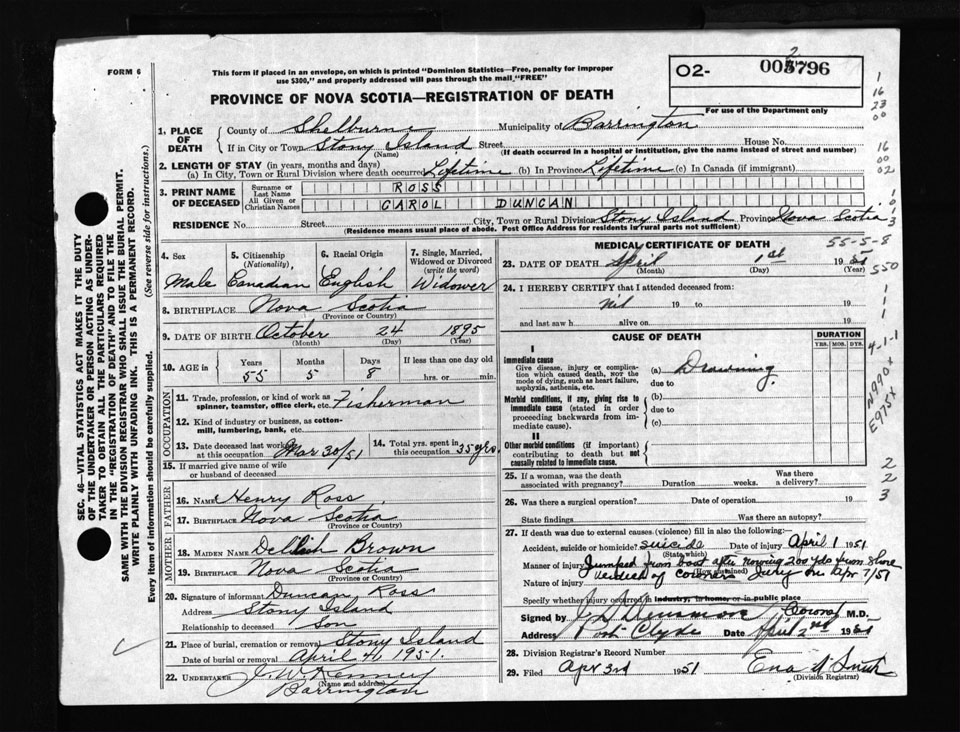 FORM 6
This form if placed in an envelope, on which is printed "Dominion Statistics—Free, penalty for improper
use $300," and properly addressed will pass through the mail, "FREE"
PROVINCE OF NOVA SCOTIA—REGISTRATION OF DEATH
02- 796
For use of the Department only
1. PLACE OF DEATH
County of Shelburne Municipality of Barrington
If in City or Town Stony Island Street House No.
(Name) (If death occurred in a hospital or institution, give the name instead of street and number)
2. LENGTH OF STAY (in years, months and days)
(a) In City, Town or Rural Division where death occurred Lifetime (b) In Province Lifetime (c) In Canada (if immigrant)
3. PRINT NAME OF DECEASED
Surname or Last Name ROSS
All Given or Christian Names CAROL DUNCAN
RESIDENCE No. Street City, Town or Rural Division Stony Island Province Nova Scotia
(Residence means usual place of abode. Post Office Address for residents in rural parts not sufficient)
4. Sex Male
5. Citizenship (Nationality) Canadian
6. Racial Origin English
7. Single, Married, Widowed or Divorced (write the word) Widower
8. BIRTHPLACE Nova Scotia
(Province or Country)
9. DATE OF BIRTH October 24 1895
(Month) (Day) (Year)
10. AGE in Years Months Days If less than one day old
55 5 8 hrs. or min.
OCCUPATION
11. Trade, profession, or kind of work as
spinner, teamster, office clerk, etc. Fisherman
12. Kind of industry or business, as cotton-
mill, lumbering, bank, etc.
13. Date deceased last worked at this occupation Mar 30/51
14. Total yrs. spent in this occupation 35 yrs.
15. If married give name of wife
or husband of deceased
FATHER
16. NAME Henry Ross
17. BIRTHPLACE Nova Scotia
(Province or Country)
MOTHER
18. MAIDEN NAME Brown
19. BIRTHPLACE Nova Scotia
(Province or Country)
20. Signature of informant Duncan Ross
Address Stony Island
Relationship to deceased Son
21. Place of burial, cremation or removal Stony Island
Date of burial or removal April 4, 1951.
22. UNDERTAKER J. W. Kenney
(Name and address)
Barrington
MEDICAL CERTIFICATE OF DEATH
55-5-8
23. DATE OF DEATH April 1st 19
(Month) (Day) (Year)
24. I HEREBY CERTIFY that I attended deceased from:
nil 19 to 19
and last saw h alive on 19
CAUSE OF DEATH
DURATION
YRS. MOS. DYS.
I
Immediate cause
Give disease, injury or complica-
tion which caused death, NOT the
mode of dying, such as heart failure,
asphyxia, asthenia, etc.
(a) Drowning
due to
Morbid conditions, if any, giving rise to
immediate cause (stated in order
proceeding backwards from im-
mediate cause).
(b)
due to
(c)
II
Other morbid conditions (if important)
contributing to death but not
causally related to immediate cause.
25. If a woman, was the death associated with pregnancy? Duration weeks. Was there a delivery?
26. Was there a surgical operation? Date of operation 19
State findings Was there an autopsy?
27. If death was due to external causes (violence) fill in also the following:
Accident, suicide or homicide? suicide Date of injury April 1 1951
(State which)
Manner of injury Jumped from boat after rowing 200 yds from shore
(How sustained)
Nature of injury verdict of coroners Jury on Apr 7/51
Specify whether injury occurred in industry, in home, or in public place
Signed by Coroner M.D.
Address Port Clyde Date April 2nd 19
28. Division Registrar's Record Number
29. Filed Apr 3rd 1951 Ena Smith
(Division Registrar)
SEC. 46—VITAL STATISTICS ACT MAKES IT THE DUTY
OF THE UNDERTAKER OR PERSON ACTING AS UNDER-
TAKER TO OBTAIN ALL THE PARTICULARS REQUIRED
IN THE "REGISTRATION OF DEATH" AND TO FILE THE
SAME WITH THE DIVISION REGISTRAR WHO SHALL ISSUE THE BURIAL PERMIT.
WRITE PLAINLY WITH UNFADING INK. THIS IS A PERMANENT RECORD.
Every item of information should be carefully supplied. (See reverse side for instructions.)
1
16
23
00
16
00
02
1
0
1
3
550
1
1
1
4-1-1
N990X
E975X
2
2
3